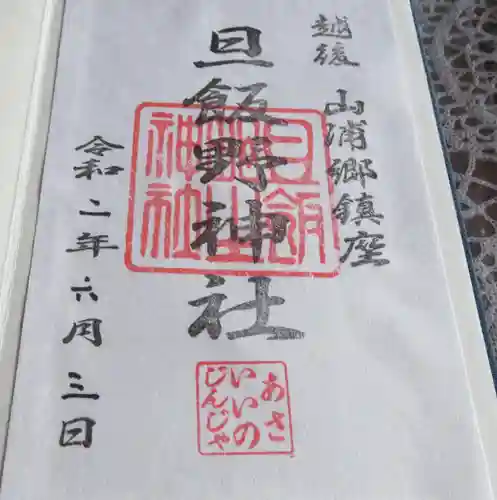 越後 山浦郷鎮座
旦飯野神社
令和二年六月三日
旦飯野神社
あさ
いいの
じんじゃ